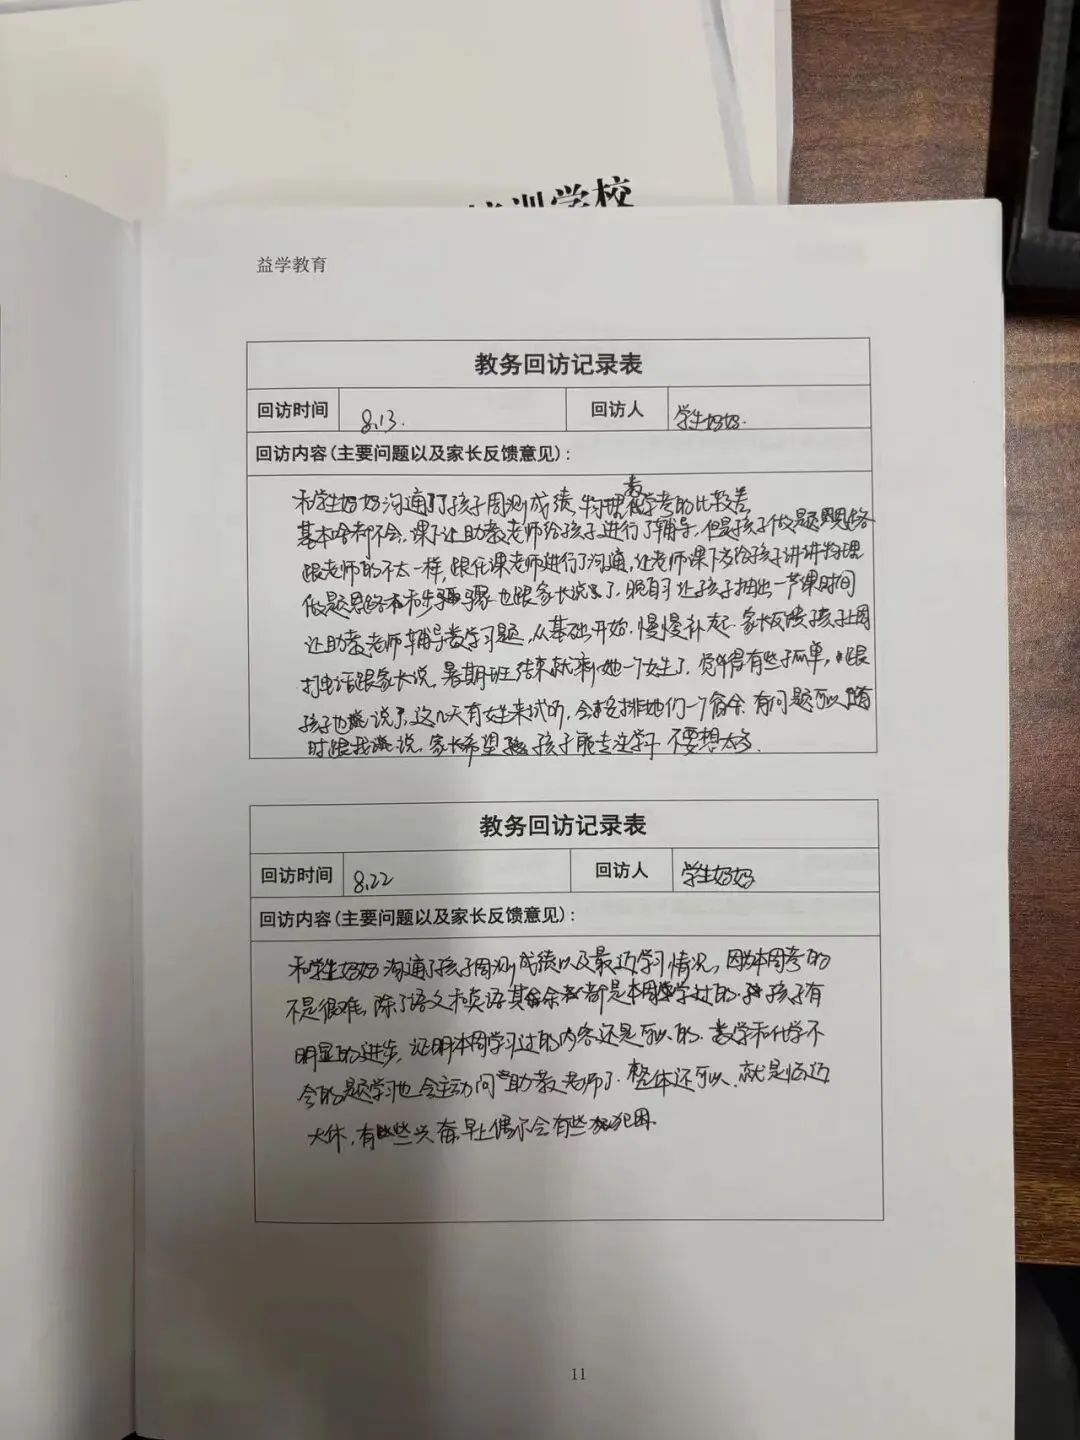 培训学校
益学教育
教务回访记录表
回访时间 8.13. 回访人 学生妈妈.
回访内容(主要问题以及家长反馈意见):
和学生妈妈沟通了孩子周测成绩,物理数学考的比较差
基本啥都不会,课下让助教老师给孩子进行了辅导,但是孩子做题思路
跟老师的不太一样,跟任课老师进行了沟通,让老师课下多给孩子讲讲物理
做题思路和步骤 也跟家长说了,晚自习让孩子抽出一节课时间
让助教老师辅导数学习题,从基础开始,慢慢补起.家长反馈孩子上周
打电话跟家长说,暑期班结束就剩她一个女生了,觉得有些孤单,跟
孩子也说了,这几天有女生来试听,会安排她们一个宿舍.有问题可以随
时跟我说,家长希望孩子能专注学习 不要想太多.
教务回访记录表
回访时间 8.22 回访人 学生妈妈
回访内容(主要问题以及家长反馈意见):
和学生妈妈沟通了孩子周测成绩以及最近学习情况,因为本周考的
不是很难,除了语文和英语其余都是本周学过的.孩子有
明显的进步,证明本周学习过的内容还是可以的.数学和化学不
会的题学习也会主动问助教老师了.整体还可以,就是临近
大休,有些兴奋,早上偶尔会有些犯困.
11